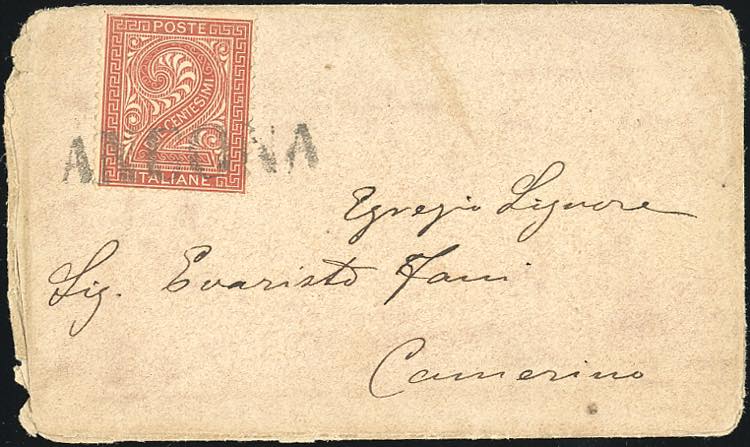 POSTE
DUE CENTESIMI
ITALIANE
ANCONA
Egregio Signore
Sig. Evaristo
Camerino